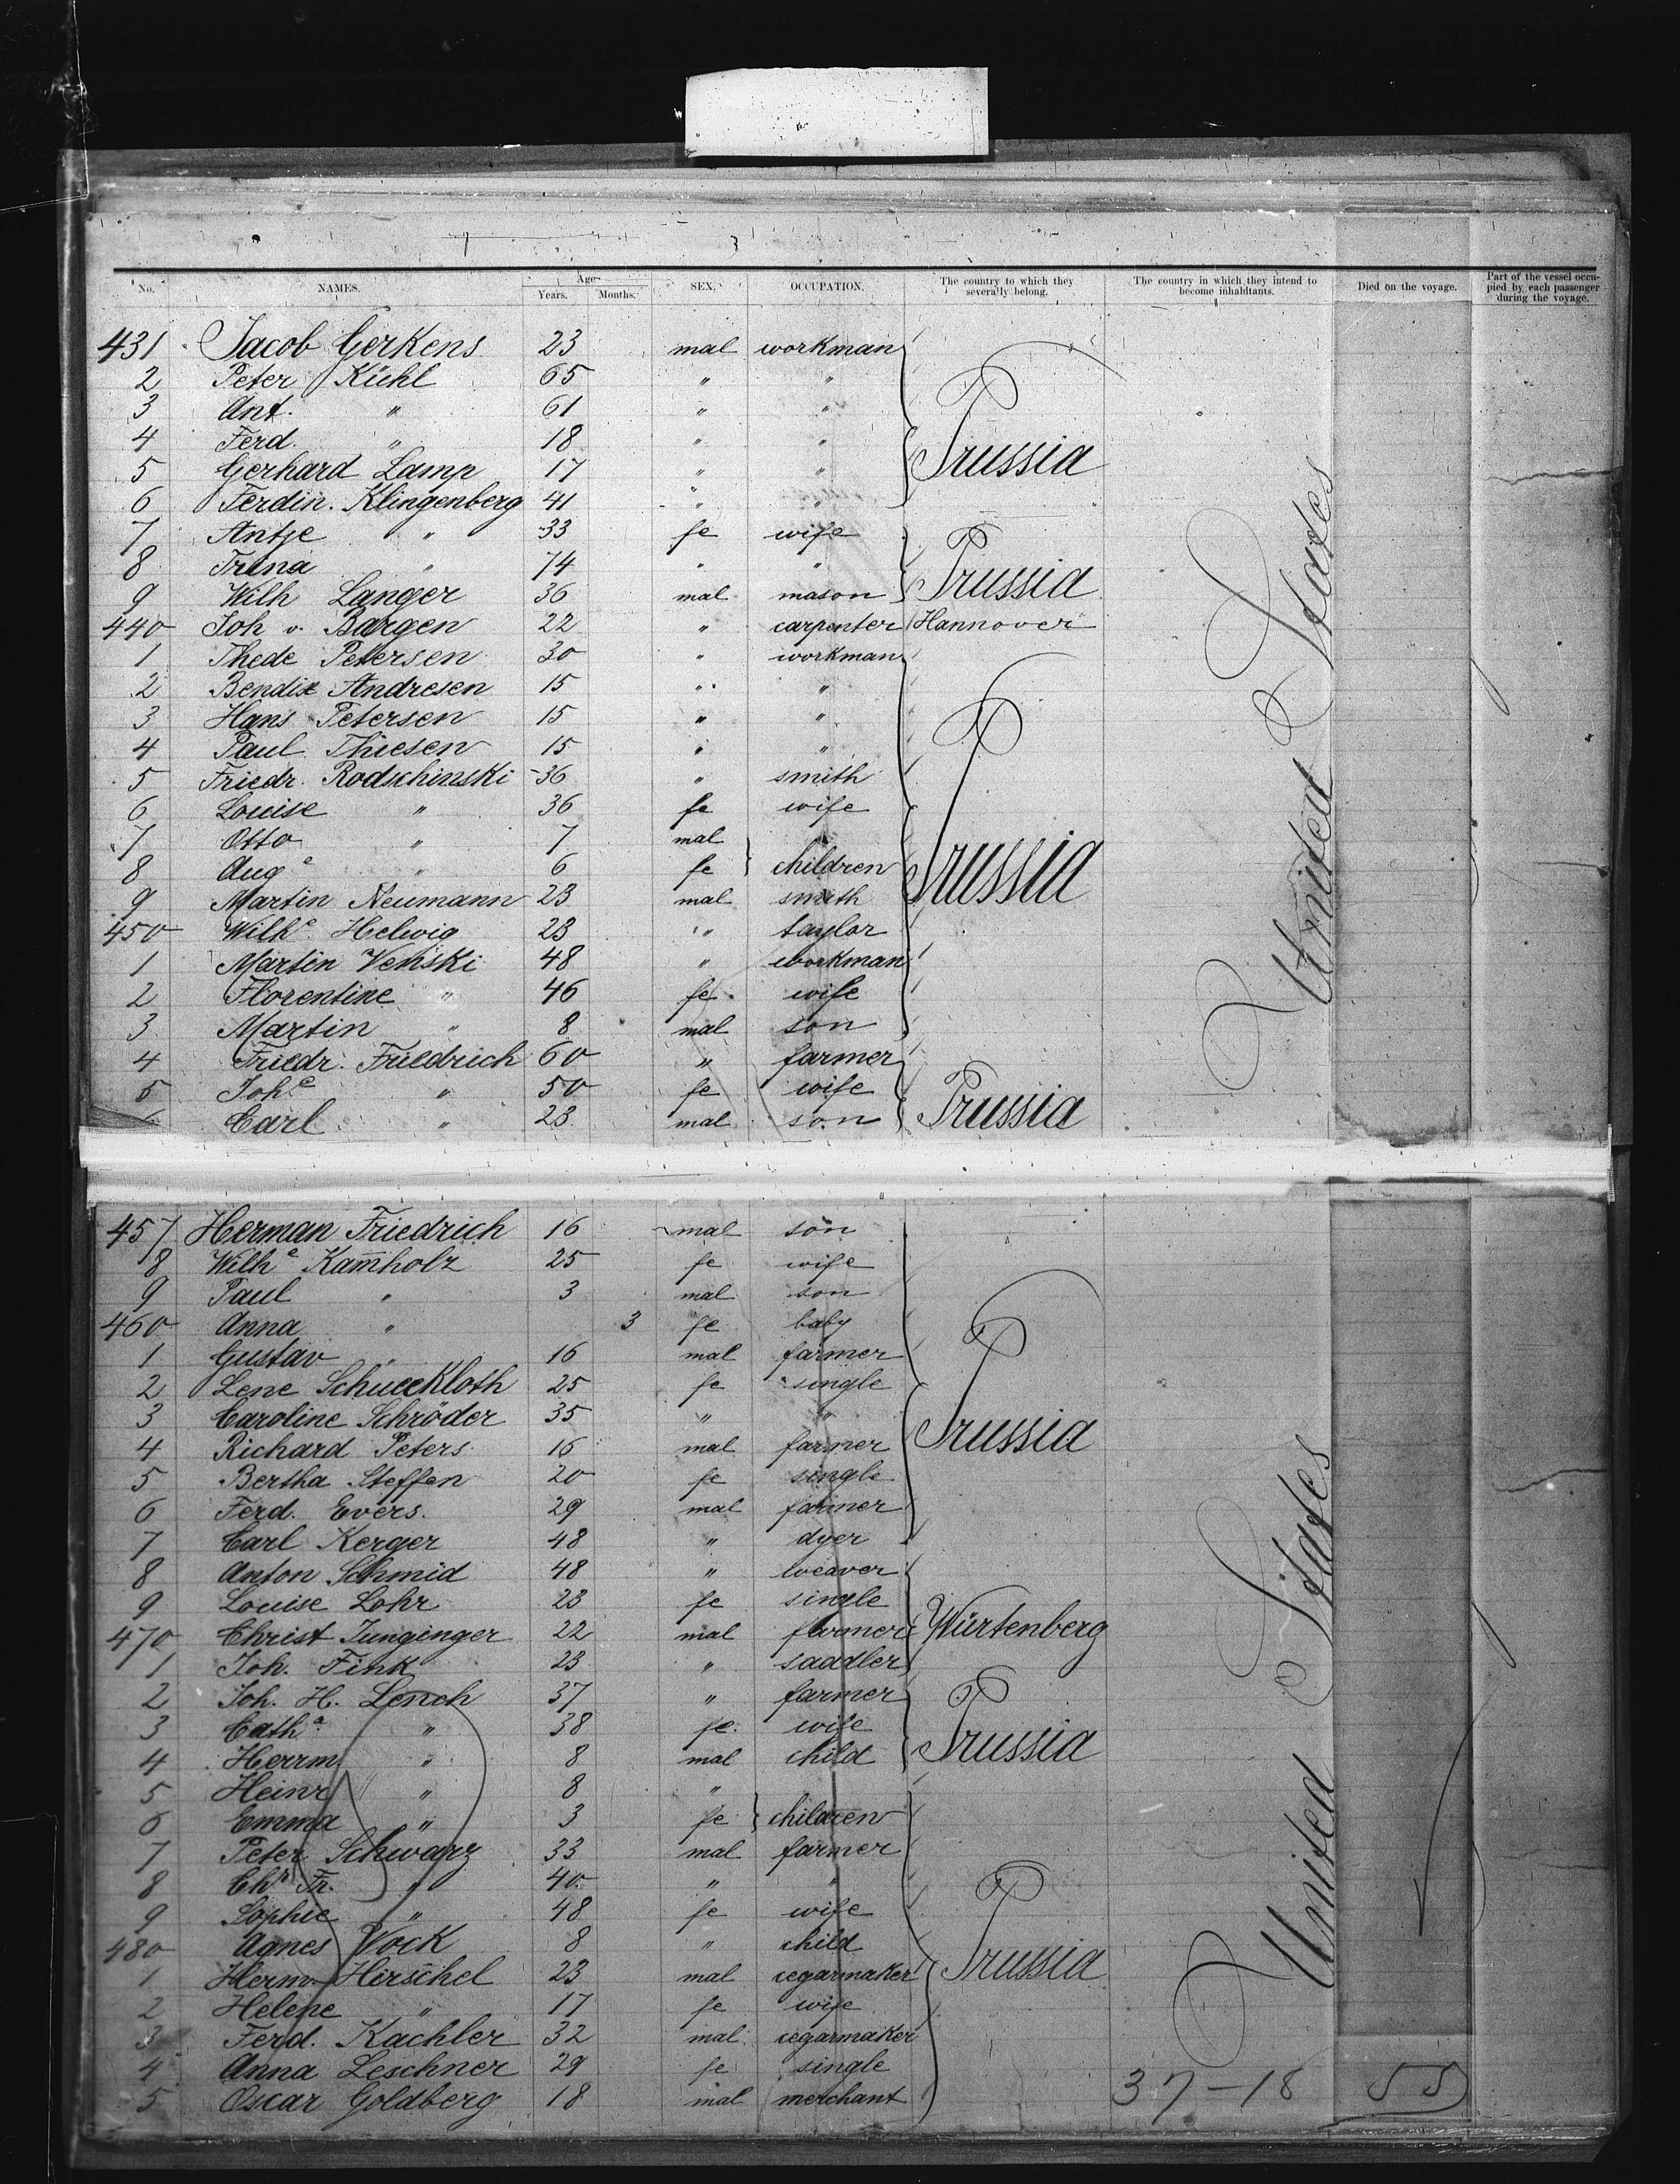 3
No. NAMES. Age Years. Months. SEX. OCCUPATION. The country to which they severally belong. The country in which they intend to become inhabitants. Died on the voyage. Part of the vessel occupied by each passenger during the voyage.
431 Jacob Gerkens 23 mal workman
2 Peter Kühl 65 " "
3 Ant. " 61 " "
4 Ferd. " 18 " " Prussia
5 Gerhard Lamp 17 " "
6 Ferdin. Klingenberg 41 " "
7 Antje " 33 fe wife
8 Trina " 74 " " Prussia
9 Wilh Langer 36 mal mason
440 Joh v. Bargen 22 " carpenter Hannover
1 Thede Petersen 30 " workman
2 Bendix Andresen 15 " "
3 Hans Petersen 15 " "
4 Paul Thiesen 15 " "
5 Friedr. Rodschinski 36 " smith
6 Louise " 36 fe wife
7 Otto " 7 mal
8 Aug e " 6 fe } children Prussia
9 Martin Neumann 23 mal smith
450 Wilh e Helwig 23 " taylor
1 Martin Venski 48 " workman
2 Florentine " 46 fe wife
3 Martin " 8 mal son
4 Friedr. Friedrich 60 " farmer
5 Joh e " 50 fe wife
Carl " 23 mal son Prussia
United States
457 Herman Friedrich 16 mal son
8 Wilh e Kam̅holz 25 fe wife
9 Paul " 3 mal son
460 Anna " 3 fe baby
1 Gustav " 16 mal farmer
2 Lene Schueekloth 25 fe single
3 Caroline Schröder 35 " " Prussia
4 Richard Peters 16 mal farmer
5 Bertha Steffen 20 fe single
6 Ferd. Evers. 29 mal farmer
7 Carl Kerger 48 " dyer
8 Anton Schmid 48 " weaver
9 Louise Lohr 23 fe single
470 Christ Junginger 22 mal farmer Würtenberg
1 Joh. Fink 23 " saadler
2 Joh. H. Lench 37 " farmer
3 Cath a " 38 fe. wife Prussia
4 Herrm. " 8 mal child
5 Heinr " 8 "
6 Emma " 3 fe } children
7 Peter Schwarz 33 mal farmer
8 Ch r Fr. " 40 " "
9 Sophie " 48 fe wife
480 Agnes Vock 8 " child Prussia
1 Herm. Hirschel 23 mal cegarmaker
2 Helene " 17 fe wife
3 Ferd. Kachler 32 mal cegarmaker
4 Anna Leschner 29 fe single
5 Oscar Goldberg 18 mal merchant
United States
37-18 55